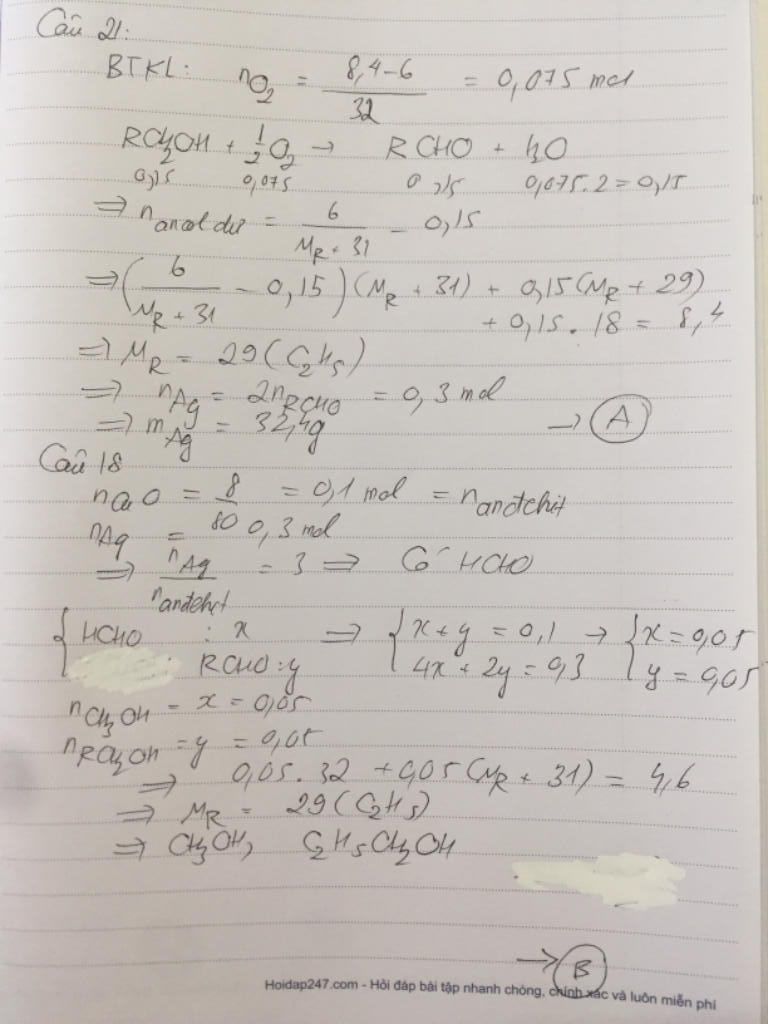 Câu 21:
BTKL: nO₂ = (8,4-6)/32 = 0,075 mol
RCH₂OH + 1/2 O₂ → RCHO + H₂O
0,15 0,075 0,15 0,075.2 = 0,15
⇒ n ancol dư = 6/(M_R + 31) - 0,15
⇒ (6/(M_R + 31) - 0,15)(M_R + 31) + 0,15(M_R + 29)
+ 0,15.18 = 8,4
⇒ M_R = 29 (C₂H₅)
⇒ n_Ag = 2n_RCHO = 0,3 mol
⇒ m_Ag = 32,4g → A
Câu 18
nCuO = 8/80 = 0,1 mol = n anđehit
n_Ag = 0,3 mol
⇒ n_Ag/n anđehit = 3 ⇒ Có HCHO
{ HCHO : x ⇒ { x + y = 0,1 → { x = 0,05
RCHO : y 4x + 2y = 0,3 y = 0,05
nCH₃OH = x = 0,05
nRCH₂OH = y = 0,05
⇒ 0,05.32 + 0,05(M_R + 31) = 4,6
⇒ M_R = 29 (C₂H₅)
⇒ CH₃OH, C₂H₅CH₂OH
→ B
Hoidap247.com - Hỏi đáp bài tập nhanh chóng, chính xác và luôn miễn phí